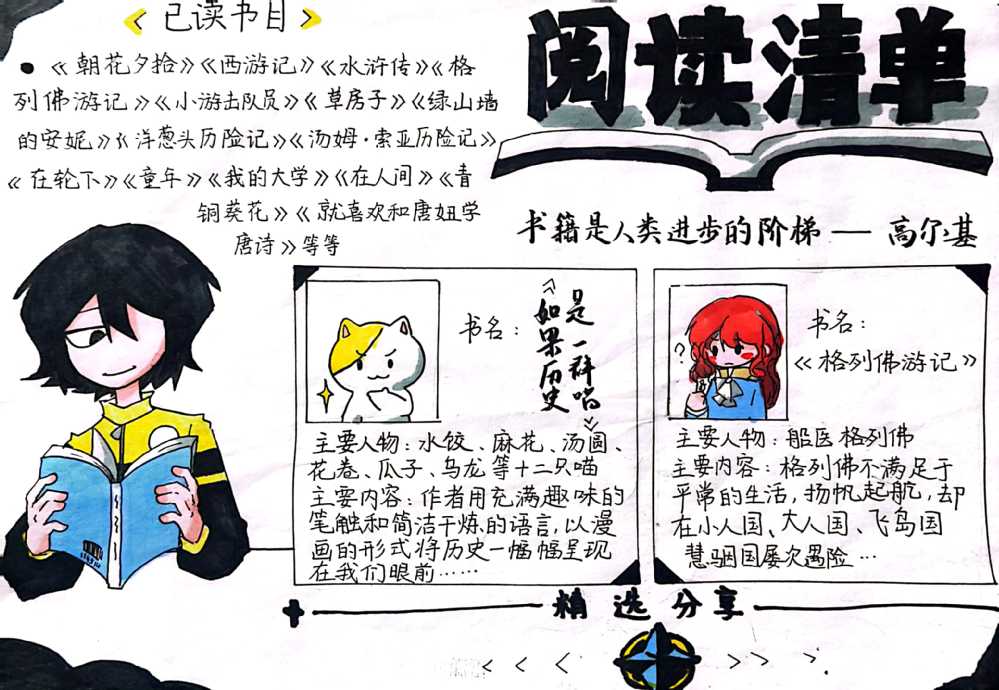 已读书目
《朝花夕拾》《西游记》《水浒传》《格
列佛游记》《小游击队员》《草房子》《绿山墙
的安妮》《洋葱头历险记》《汤姆·索亚历险记》
《在轮下》《童年》《我的大学》《在人间》《青
铜葵花》《就喜欢和唐妞学
唐诗》等等
阅读清单
书籍是人类进步的阶梯——高尔基
书名：
《如果历史
是一群喵》
主要人物：水饺、麻花、汤圆、
花卷、瓜子、乌龙等十二只喵
主要内容：作者用充满趣味的
笔触和简洁干炼的语言，以漫
画的形式将历史一幅幅呈现
在我们眼前……
?
书名：
《格列佛游记》
主要人物：船医格列佛
主要内容：格列佛不满足于
平常的生活，扬帆起航，却
在小人国、大人国、飞鸟国
慧骃国屡次遇险…
精选分享